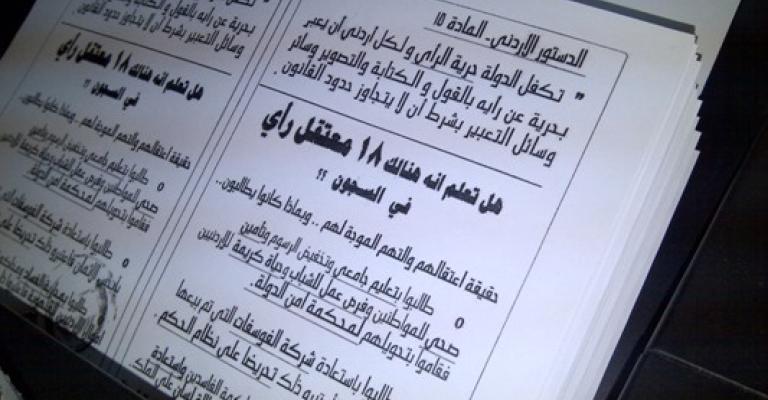 الدستور الاردني- المادة ١٥
" تكفل الدولة حرية الرأي و لكل اردني أن يعبر
بحرية عن رايه بالقول و الكتابة والتصوير وسائر
وسائل التعبير بشرط ان لا يتجاوز حدود القانون .
هل تعلم انه هنالك ١٨ معتقل رأي
في السجون ؟؟
حقيقة اعتقالهم والتهم الموجة لهم .. وبماذا كانوا يطالبون..
o طالبوا بتعليم جامعي وتخفيض الرسوم وتأمين
صحي المواطنين وفرص عمل للشباب وحياة كريمة للاردنيين
فقاموا بتحويلهم لمحكمة امن الدولة.
o طالبوا باستعادة شركة الفوسفات التي تم بيعها
ذلك تحريضا على نظام الحكم .
الفاسدين واستعادة
على الملك
تكفل الدولة حرية
بحرية عن رايه بالقول و
وسائل التعبير بشرط ان لا يتجاوز حدود القانون
هل تعلم انه هنالك ١٨ معتقل رأي
في السجون ؟؟
حقيقة اعتقالهم والتهم الموجة لهم .. وبماذا كانوا يطالبون..
o طالبوا بتعليم جامعي وتخفيض الرسوم وتأمين
صحي المواطنين وفرص عمل للشباب
فقاموا بتحويلهم لمحكمة امن الدولة
o طالبوا باستعادة شركة الفوسفات